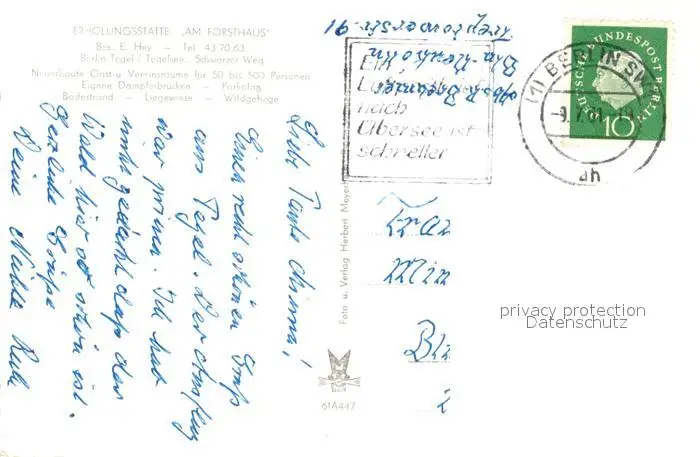 ERHOLUNGSSTÄTTE „AM FORSTHAUS"
Bes. E. Hey — Tel. 43 70 63
Berlin-Tegel / Tegelsee, Schwarzer Weg
Neuerbaute Gast- u. Vereinsräume für 50 bis 500 Personen
Eigene Dampferbrücken — Parkplatz
Badestrand — Liegewiese — Wildgehege
Liebe Tante Anna!
Einen recht schönen Gruß
aus Tegel. Der Ausflug
war prima. Ich hab
nicht gedacht daß der
Wald hier so schön ist.
Herzliche Grüße
Deine
Foto u. Verlag Herbert Meyer
61A447
Ein
nach
Übersee ist
schneller
(1) BERLIN SW
-9.7.61
ah
DEUTSCHE BUNDESPOST BERLIN
10
Absender:
Bln-Neukölln
Treptowerstr. 91
Frau
Min
privacy protection
Datenschutz